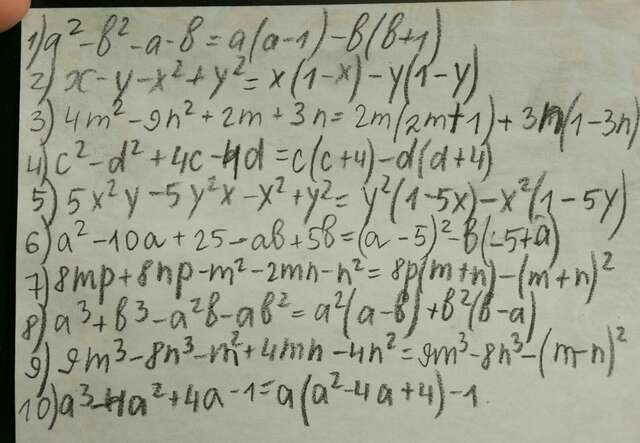 1) a² - b² - a - b = a(a-1) - b(b+1)
2) x - y - x² + y² = x(1-x) - y(1-y)
3) 4m² - 9n² + 2m + 3n = 2m(2m+1) + 3n(1-3n)
4) c² - d² + 4c - 4d = c(c+4) - d(d+4)
5) 5x²y - 5y²x - x² + y² = y²(1-5x) - x²(1-5y)
6) a² - 10a + 25 - ab + 5b = (a-5)² - b(-5+a)
7) 8mp + 8np - m² - 2mn - n² = 8p(m+n) - (m+n)²
8) a³ + b³ - a²b - ab² = a²(a-b) + b²(b-a)
9) 9m³ - 8n³ - m² + 4mn - 4n² = 9m³ - 8n³ - (m-n)²
10) a³ - 4a² + 4a - 1 = a(a² - 4a + 4) - 1